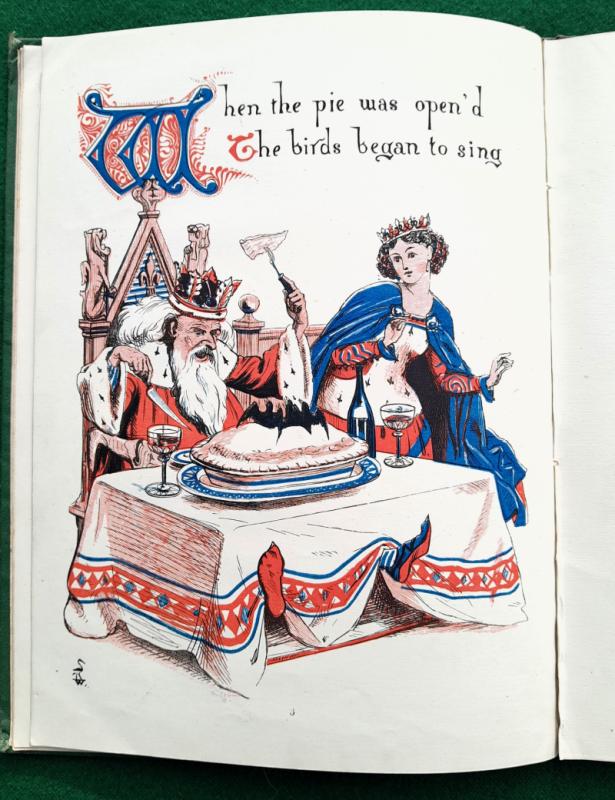 When the pie was open'd
The birds began to sing